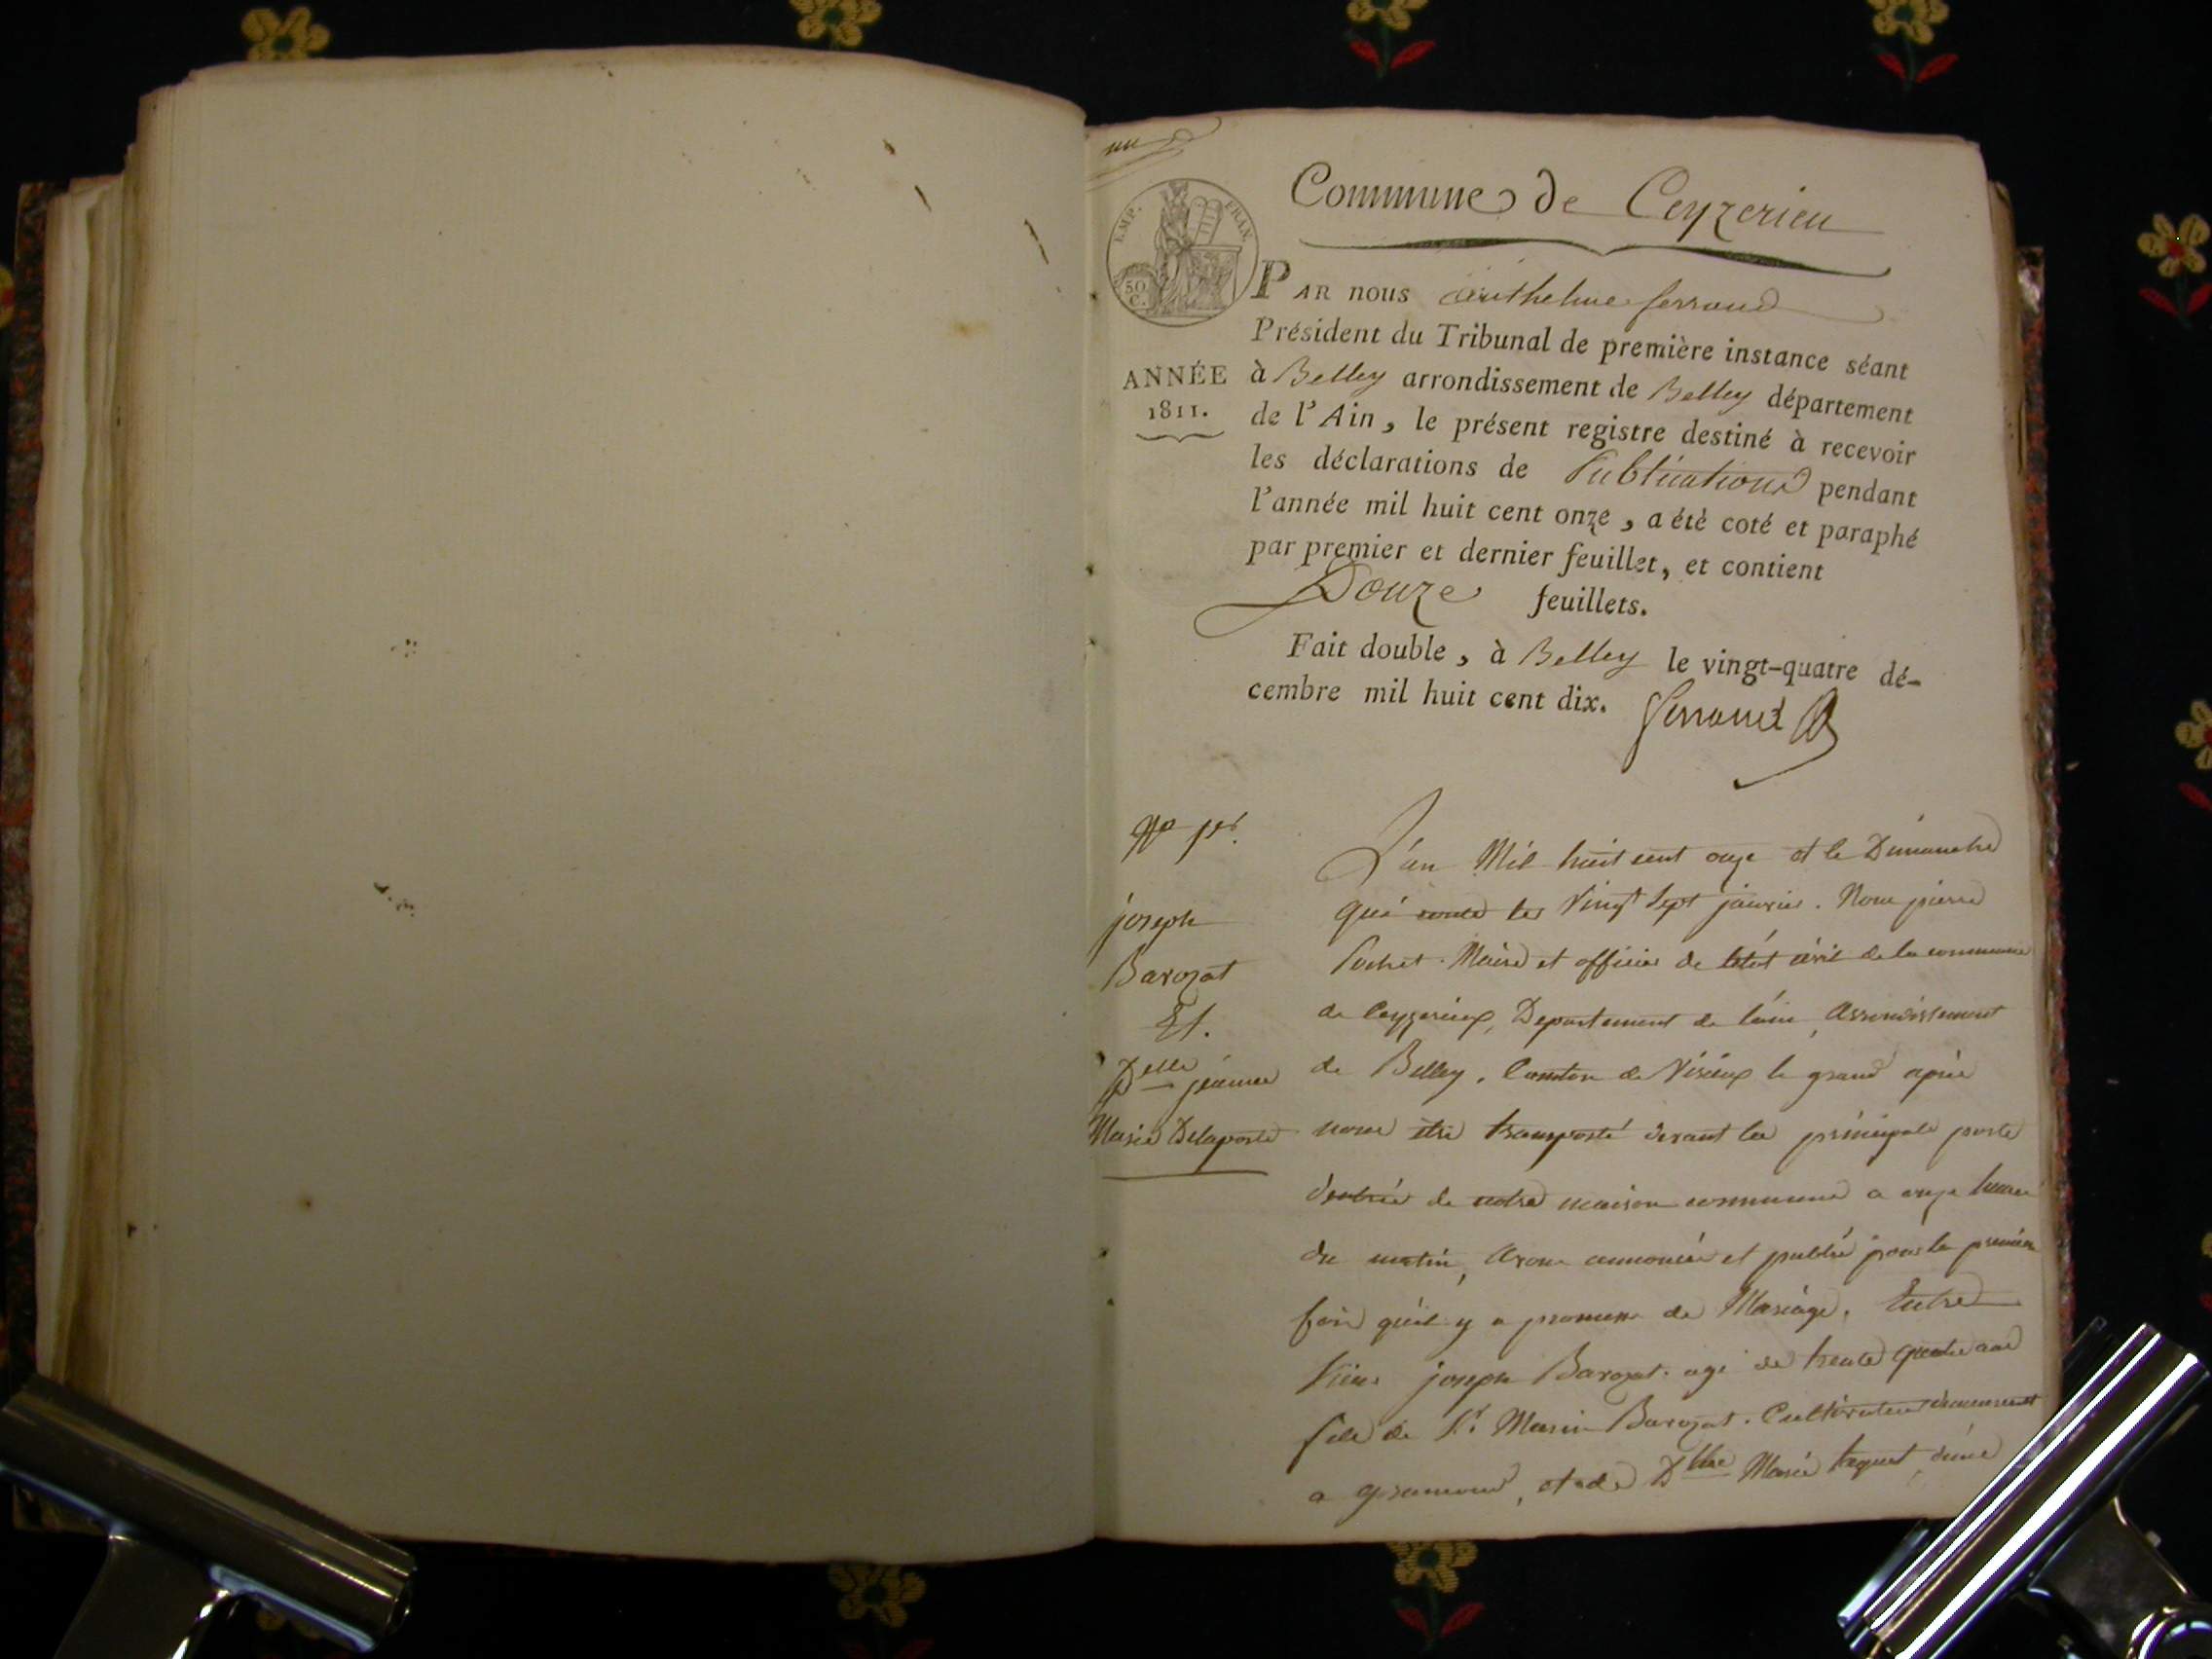 un
Commune de Ceyzerieu
EMP. FRAN.
50
C.
PAR nous Anthelme ferrand
Président du Tribunal de première instance séant
ANNÉE
1811.
à Belley arrondissement de Belley département
de l'Ain, le présent registre destiné à recevoir
les déclarations de Publications pendant
l'année mil huit cent onze, a été coté et paraphé
par premier et dernier feuillet, et contient
Douze feuillets.
Fait double, à Belley le vingt-quatre dé-
cembre mil huit cent dix. ferrand
No 1er.
joseph
Barozat
Et.
Delle jeanne
Marie Delaporte
L'an Mil huit cent onze et le Dimanche
qué conte les Vingt Sept janvier. Nous pierre
Pochet Maire et officier de létat civil de la commune
de Ceyzerieux, Departement de láin, Arrondissement
de Belley, Canton de Virieux le grand après
nous être transporté devant la principale porte
dentrée de notre maison commune a onze heures
du matin, Avons annoncée et publié pour la premiere
fois quil y a promesse de Mariage. Entre
Sieur joseph Barozat. agé de trente quatre ans
fils de Sr. Marin Barozat. Cultivateur demeurant
a, et de Dlle Marie